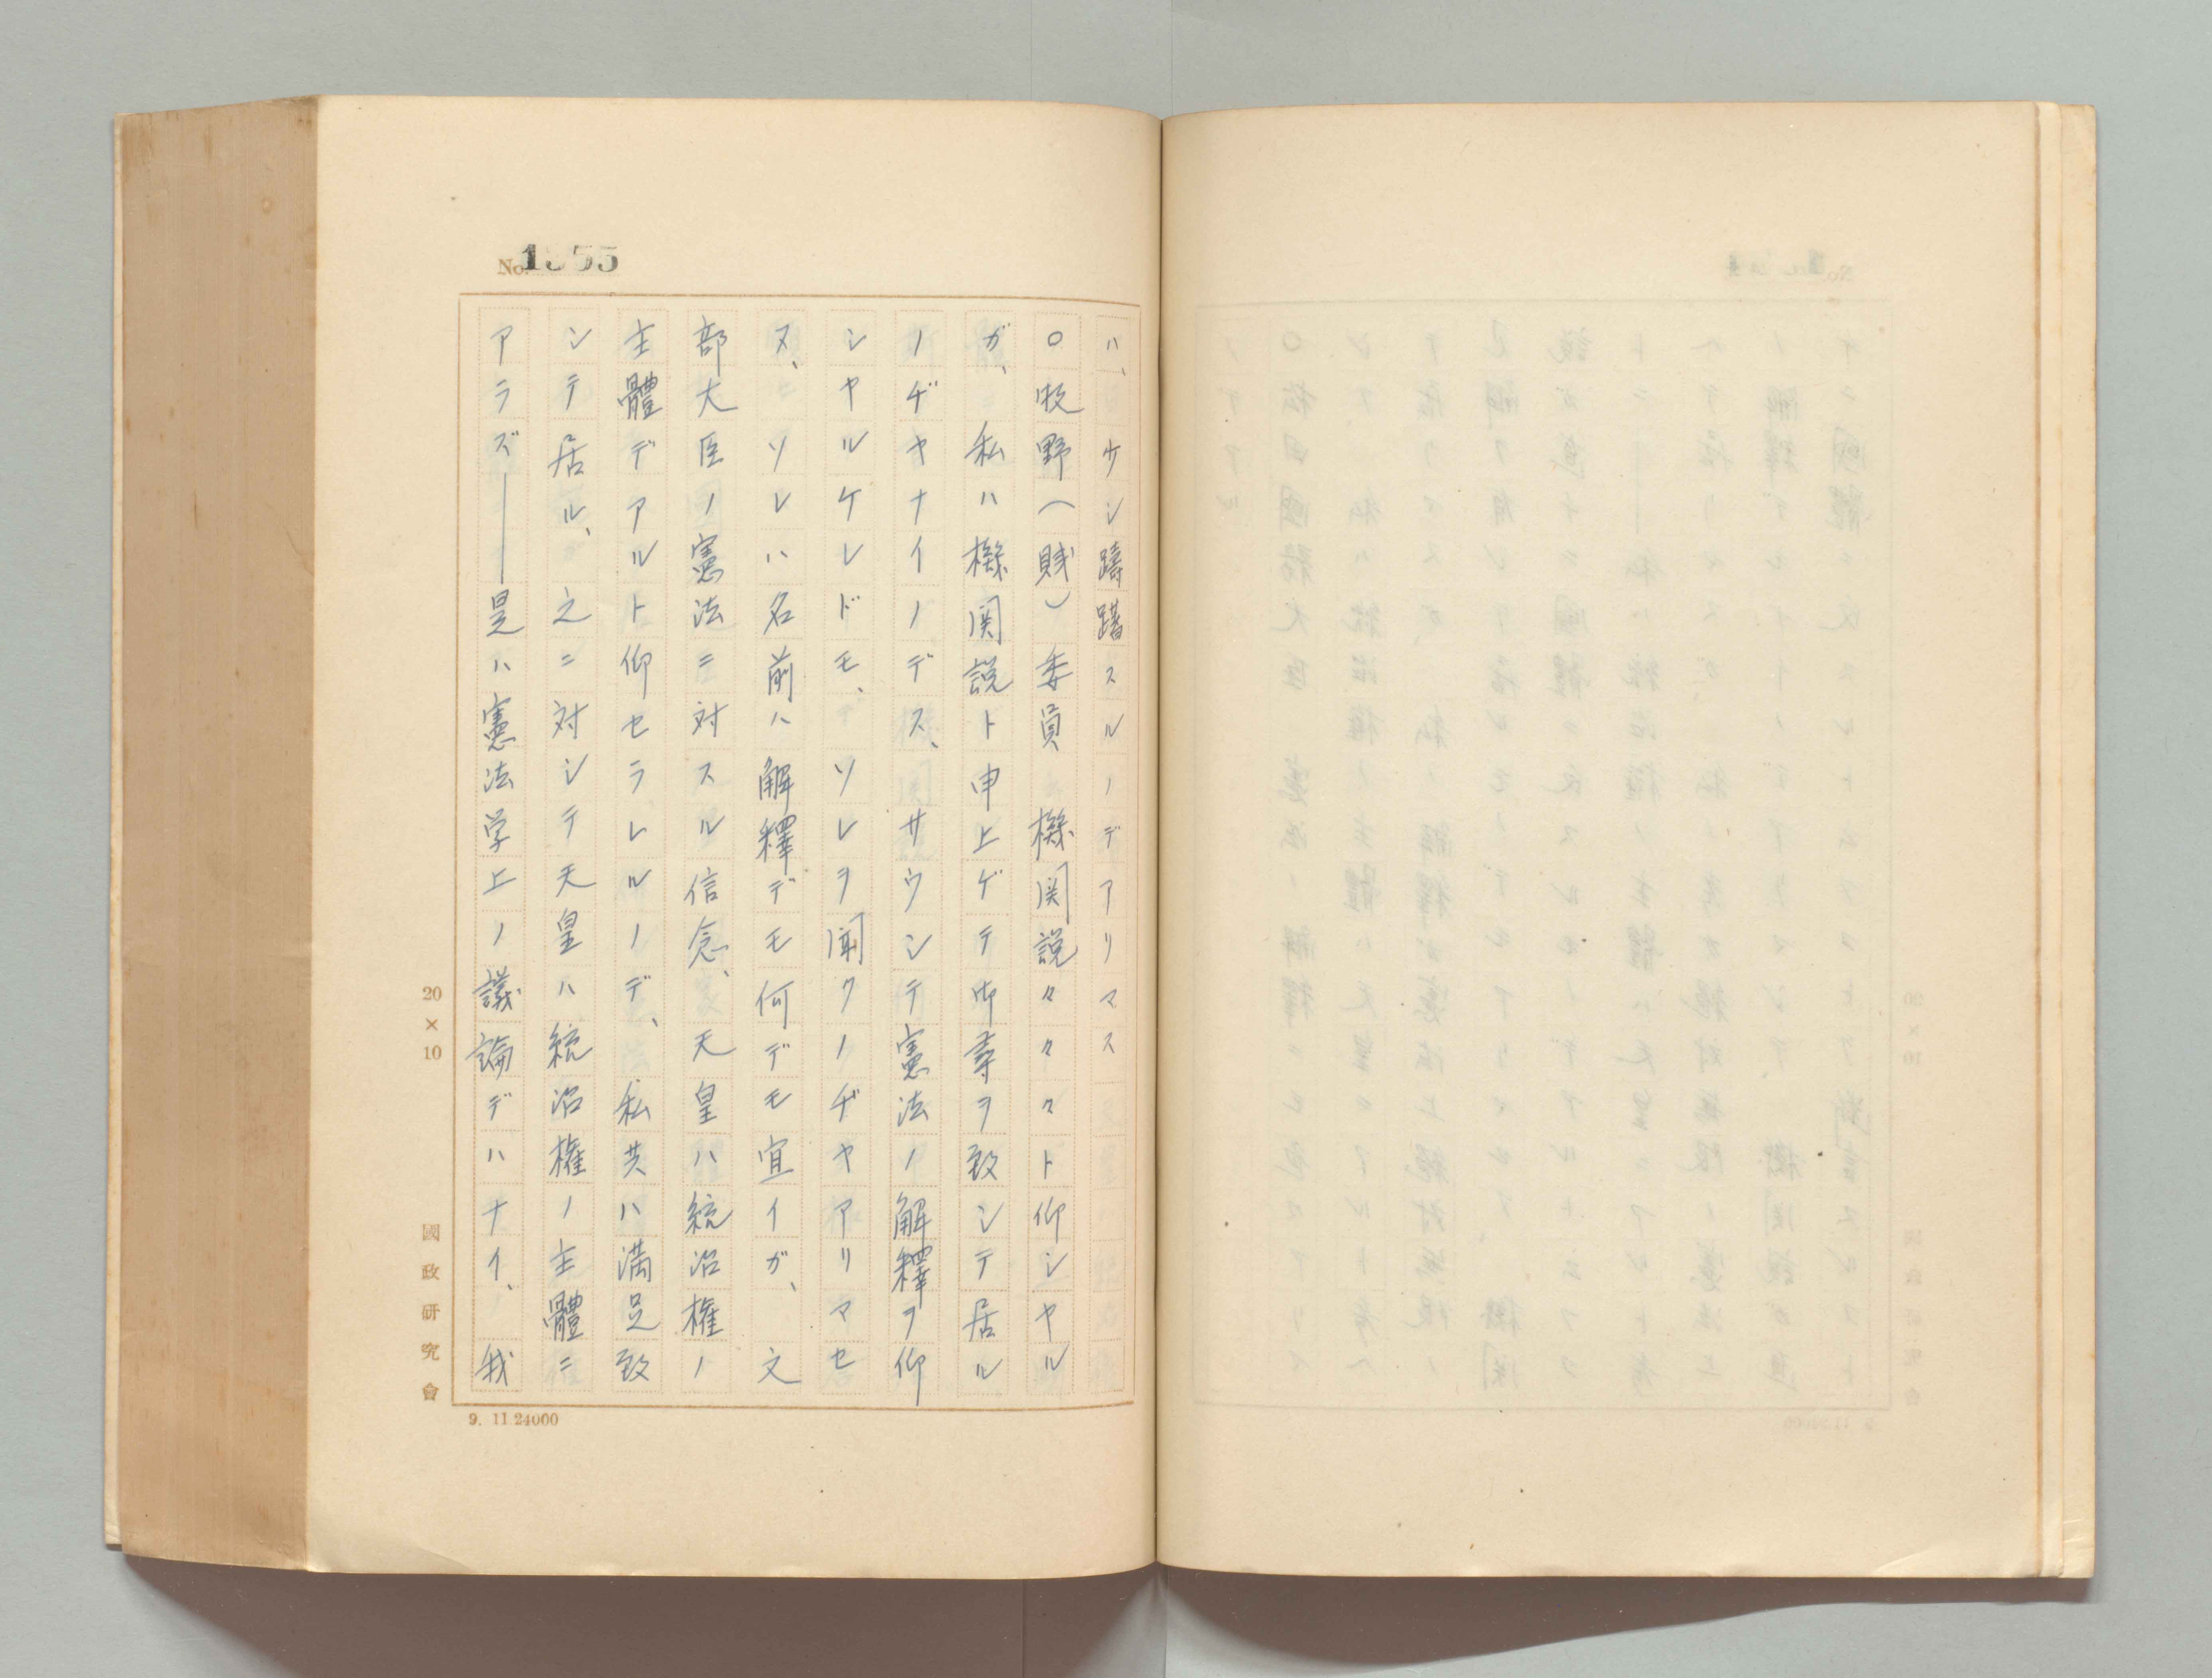 No. 1355
ハ、少シ躊躇スルノデアリマス
○牧野(賤)委員 機関説々々々ト仰シヤル
ガ、私ハ機関説ト申上ゲテ御尋ヲ致シテ居ル
ノヂヤナイノデス、サウシテ憲法ノ解釋ヲ仰
シヤルケレドモ、ソレヲ聞クノヂヤアリマセ
ヌ、ソレハ名前ハ解釋デモ何デモ宜イガ、文
部大臣ノ憲法ニ対スル信念、天皇ハ統治権ノ
主體デアルト仰セラレルノデ、私共ハ満足致
シテ居ル、之ニ対シテ天皇ハ統治権ノ主體ニ
アラズ――是ハ憲法学上ノ議論デハナイ、我
20×10
國政研究會
9. 11.24000